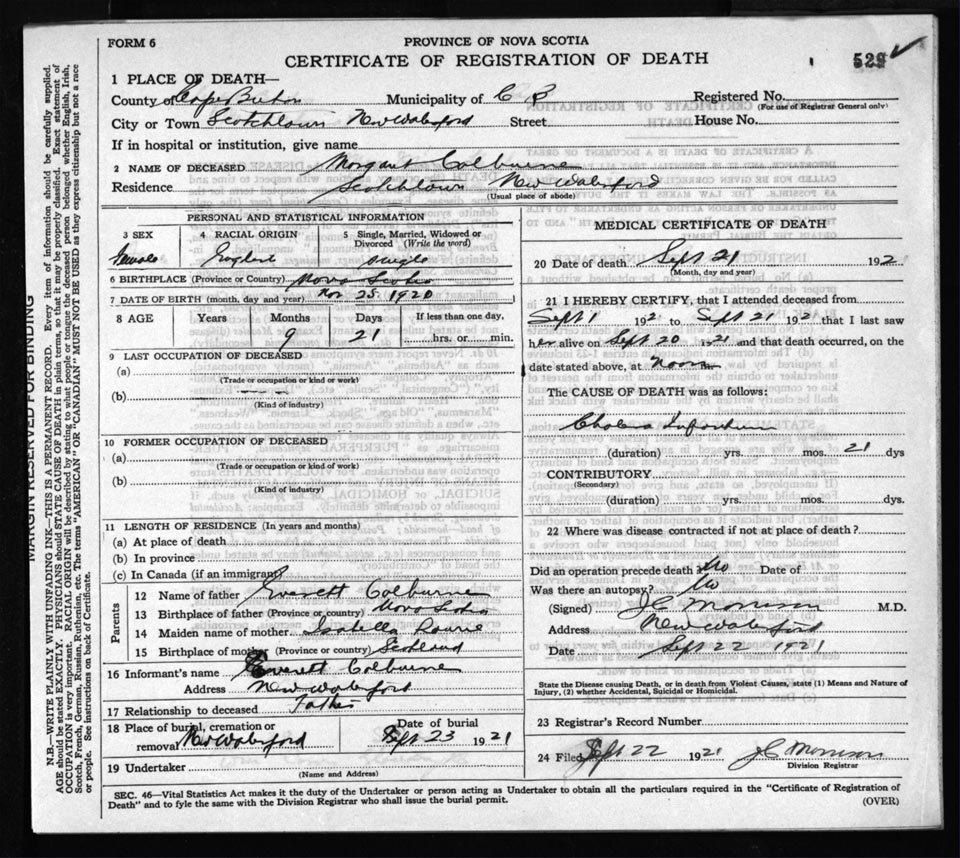 FORM 6
PROVINCE OF NOVA SCOTIA
CERTIFICATE OF REGISTRATION OF DEATH
529
1 PLACE OF DEATH—
County of Cape Breton Municipality of C B Registered No.
(For use of Registrar General only)
City or Town Scotchtown New Waterford Street House No.
If in hospital or institution, give name
2 NAME OF DECEASED Margaret Colburne
Residence Scotchtown New Waterford
(Usual place of abode)
PERSONAL AND STATISTICAL INFORMATION
3 SEX 4 RACIAL ORIGIN 5 Single, Married, Widowed or
Divorced (Write the word)
Female English single
6 BIRTHPLACE (Province or Country) Nova Scotia
7 DATE OF BIRTH (month, day and year) Nov 25. 1920
8 AGE Years Months Days If less than one day,
9 21 hrs. or min.
9 LAST OCCUPATION OF DECEASED
(a)
(Trade or occupation or kind or work)
(b)
(Kind of industry)
10 FORMER OCCUPATION OF DECEASED
(a)
(Trade or occupation or kind of work)
(b)
(Kind of industry)
11 LENGTH OF RESIDENCE (In years and months)
(a) At place of death
(b) In province
(c) In Canada (if an immigrant)
Parents
12 Name of father Everett Colburne
13 Birthplace of father (Province or country) Nova Scotia
14 Maiden name of mother Isabella
15 Birthplace of mother (Province or country) Scotland
16 Informant's name Everett Colburne
Address New Waterford
17 Relationship to deceased Father
18 Place of burial, cremation or Date of burial
removal New Waterford Sept 23 1921
19 Undertaker
(Name and Address)
MEDICAL CERTIFICATE OF DEATH
20 Date of death Sept 21 192
(Month, day and year)
21 I HEREBY CERTIFY, that I attended deceased from
Sept 1 192 to Sept 21 1921 that I last saw
her alive on Sept 20 1921 and that death occurred, on the
date stated above, at noon m.
The CAUSE OF DEATH was as follows:
Cholera Infantum
(duration) yrs. mos. 21 dys
CONTRIBUTORY
(Secondary)
(duration) yrs. mos. dys.
22 Where was disease contracted if not at place of death?
Did an operation precede death? No
Was there an autopsy? No
(Signed) J C Morrison M.D.
Address New Waterford
Date Sept 22 1921
State the Disease causing Death, or in death from Violent Causes, state (1) Means and Nature of
Injury, (2) whether Accidental, Suicidal or Homicidal.
23 Registrar's Record Number
24 Filed Sept 22 1921 J C Morrison
Division Registrar
SEC. 46—Vital Statistics Act makes it the duty of the Undertaker or person acting as Undertaker to obtain all the particulars required in the "Certificate of Registration of
Death" and to fyle the same with the Division Registrar who shall issue the burial permit.
(OVER)
MARGIN RESERVED FOR BINDING
N.B.—WRITE PLAINLY WITH UNFADING INK—THIS IS A PERMANENT RECORD. Every item of information should be carefully supplied.
AGE should be stated EXACTLY. PHYSICIANS should STATE CAUSE OF DEATH in plain terms, so that it may be properly classified. Exact statement of
OCCUPATION is very important. RACIAL ORIGIN will be described by stating to what people or tongue the deceased person belonged whether English, Irish,
Scotch, French, German, Russian, Ruthenian, etc. The terms "AMERICAN" OR "CANADIAN" MUST NOT BE USED as they express citizenship but not a race
or people. See instructions on back of Certificate.